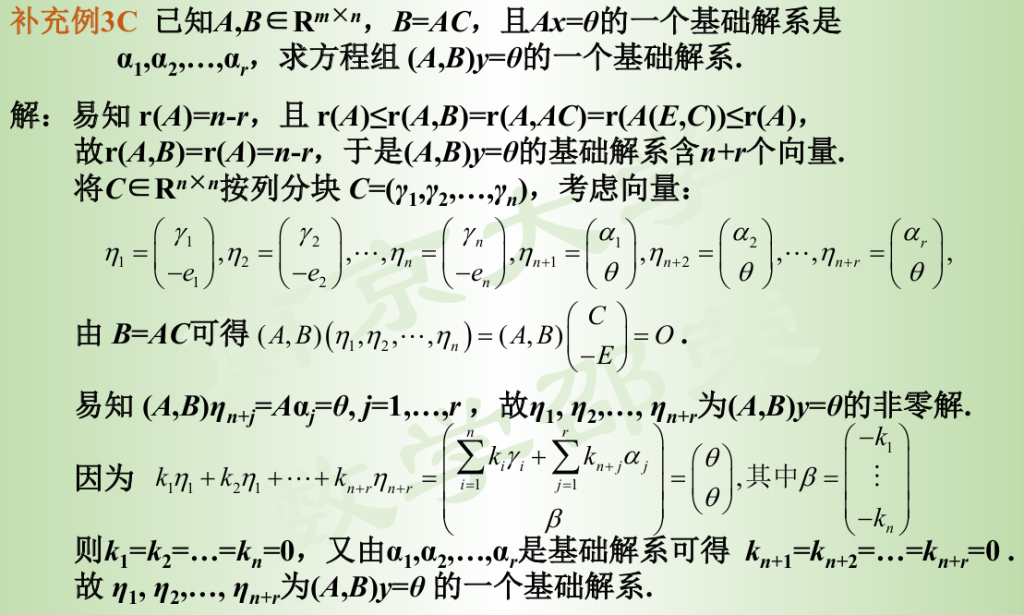 补充例3C 已知A,B∈Rᵐ×ⁿ，B=AC，且Ax=θ的一个基础解系是
α₁,α₂,…,αᵣ，求方程组 (A,B)y=θ的一个基础解系.
解：易知 r(A)=n-r，且 r(A)≤r(A,B)=r(A,AC)=r(A(E,C))≤r(A)，
故r(A,B)=r(A)=n-r，于是(A,B)y=θ的基础解系含n+r个向量.
将C∈Rⁿ×ⁿ按列分块 C=(γ₁,γ₂,…,γₙ)，考虑向量：
η₁ = (γ₁ / −e₁), η₂ = (γ₂ / −e₂), ⋯, ηₙ = (γₙ / −eₙ), ηₙ₊₁ = (α₁ / θ), ηₙ₊₂ = (α₂ / θ), ⋯, ηₙ₊ᵣ = (αᵣ / θ),
由 B=AC可得 (A,B)(η₁,η₂,⋯,ηₙ) = (A,B)(C / −E) = O .
易知 (A,B)ηₙ₊ⱼ=Aαⱼ=θ, j=1,…,r ，故η₁, η₂,…, ηₙ₊ᵣ为(A,B)y=θ的非零解.
因为 k₁η₁ + k₂η₁ + ⋯ + kₙ₊ᵣηₙ₊ᵣ = (∑ᵢ₌₁ⁿ kᵢγᵢ + ∑ⱼ₌₁ʳ kₙ₊ⱼαⱼ / β) = (θ / θ), 其中 β = (−k₁ / ⋮ / −kₙ)
则k₁=k₂=…=kₙ=0，又由α₁,α₂,…,αᵣ是基础解系可得 kₙ₊₁=kₙ₊₂=…=kₙ₊ᵣ=0 .
故 η₁, η₂,…, ηₙ₊ᵣ为(A,B)y=θ 的一个基础解系.